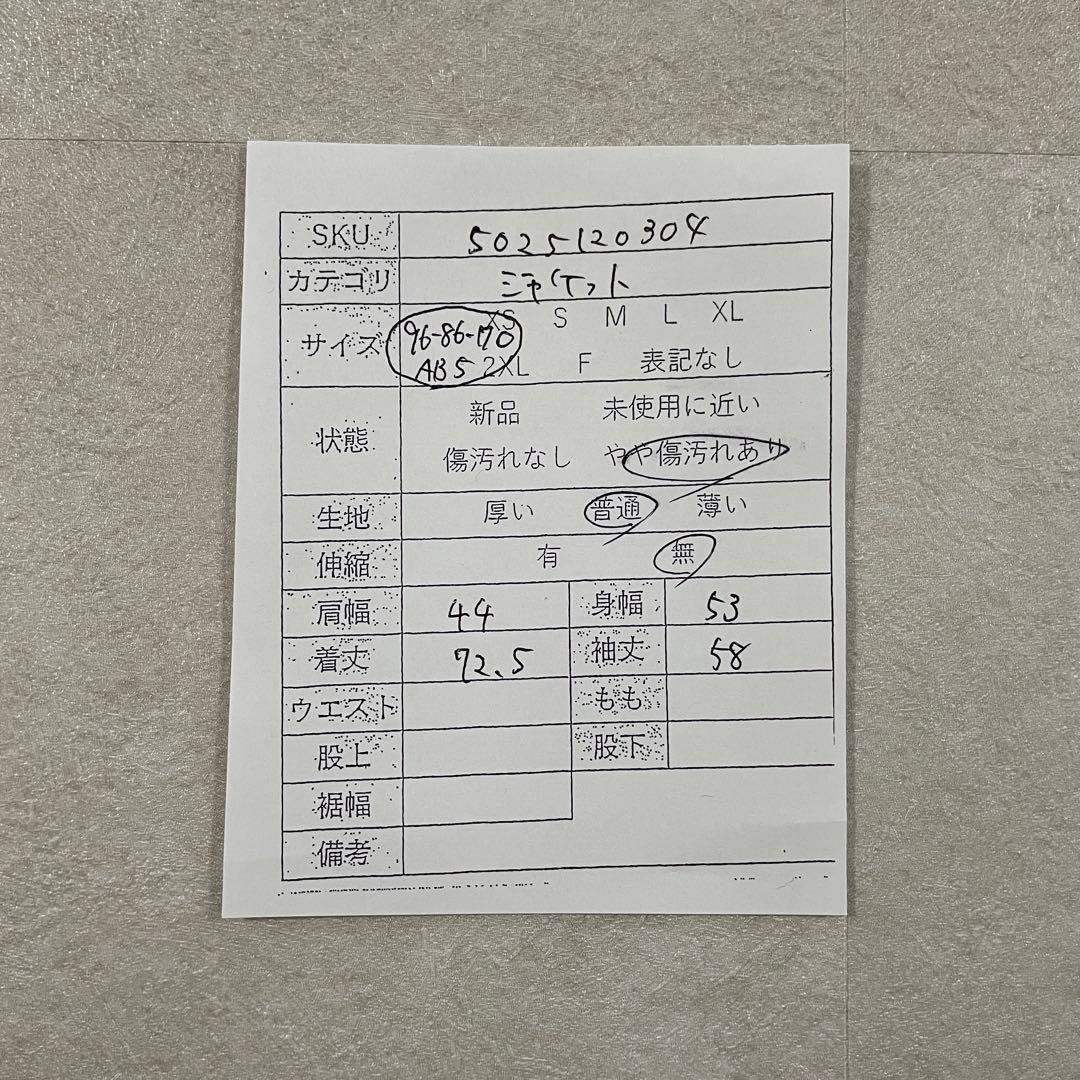 SKU 5025120304
カテゴリ ジャケット
サイズ 96-86-170 XS S M L XL
AB5 2XL F 表記なし
状態 新品 未使用に近い
傷汚れなし やや傷汚れあり
生地 厚い 普通 薄い
伸縮 有 無
肩幅 44 身幅 53
着丈 72.5 袖丈 58
ウエスト もも
股上 股下
裾幅
備考